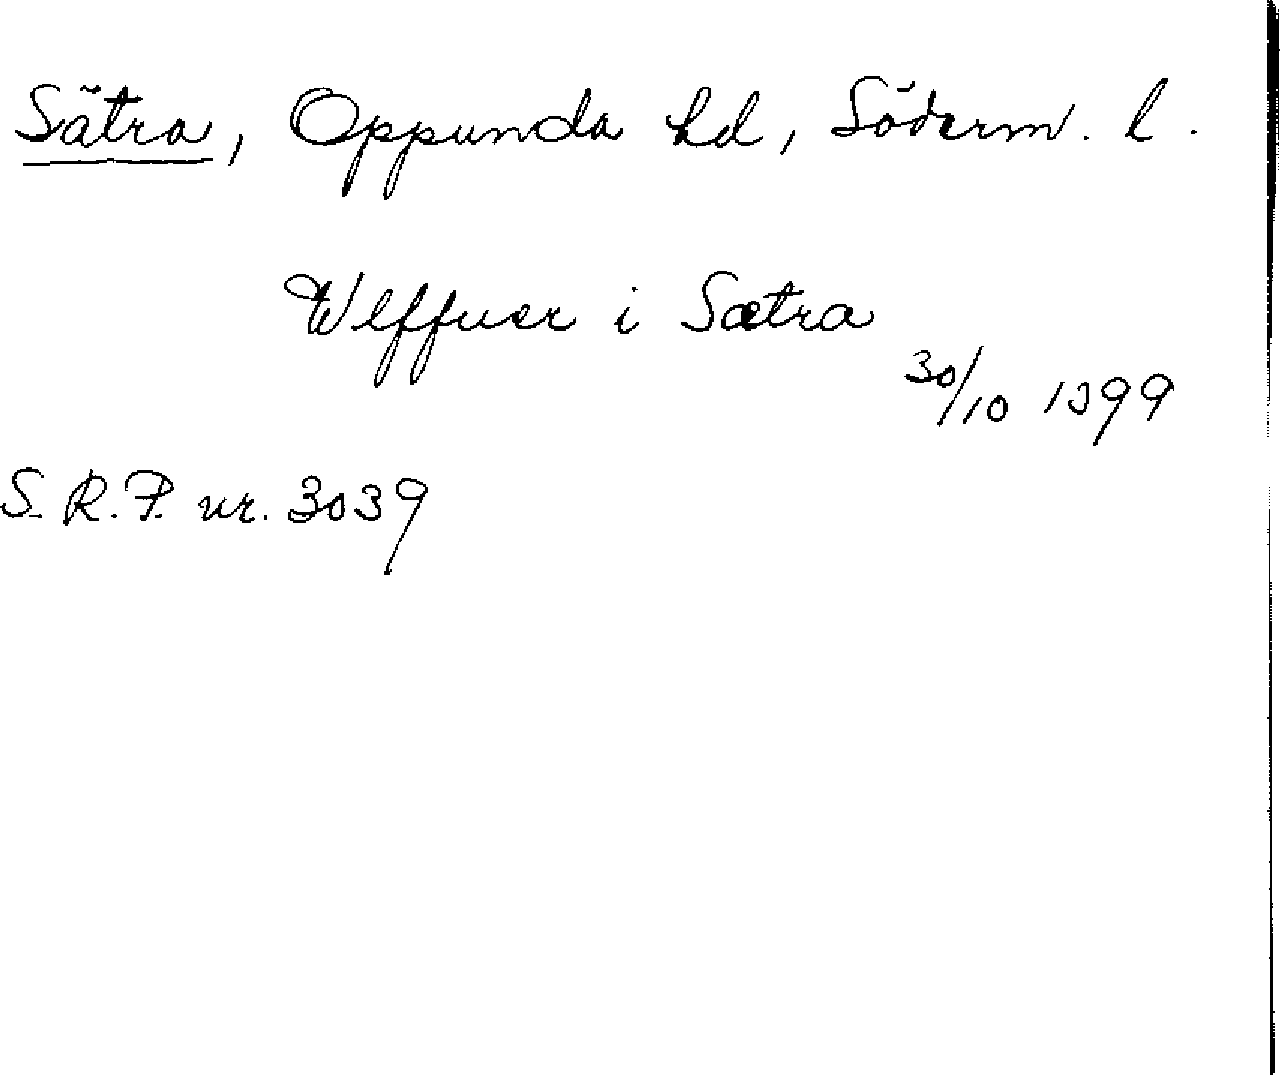 Sätra, Oppunda hd, Söderm. l.
Wlffuer i Sætra
30/10 1399
S. R. P. nr. 3039